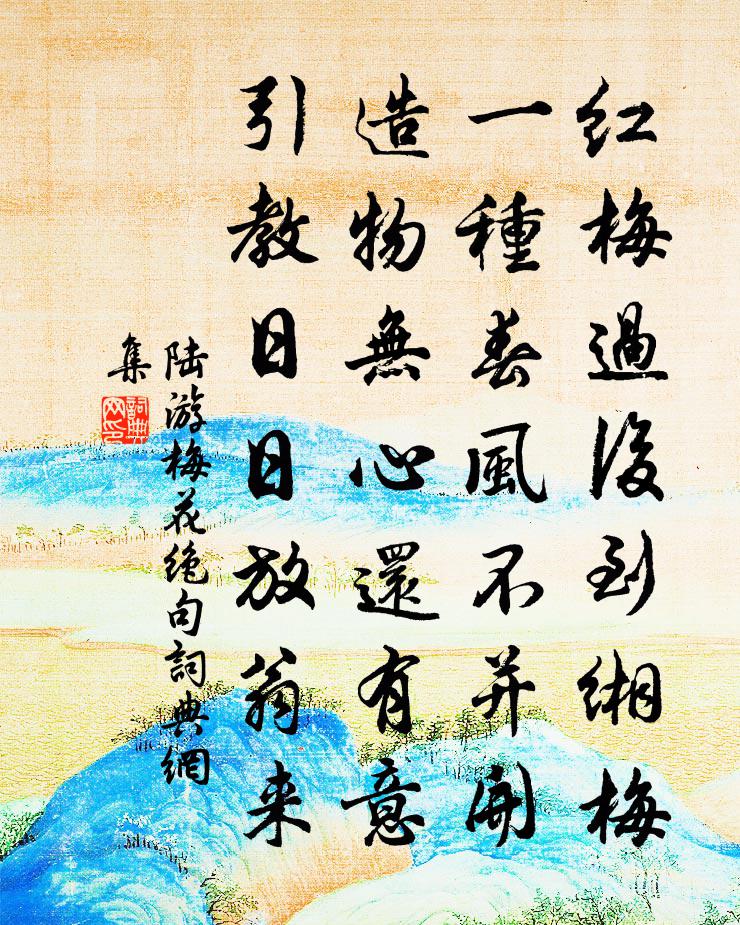 红梅過後到緗梅
一種春風不并開
造物無心還有意
引教日日放翁来
陆游梅花绝句詞典網
集
詞典网印